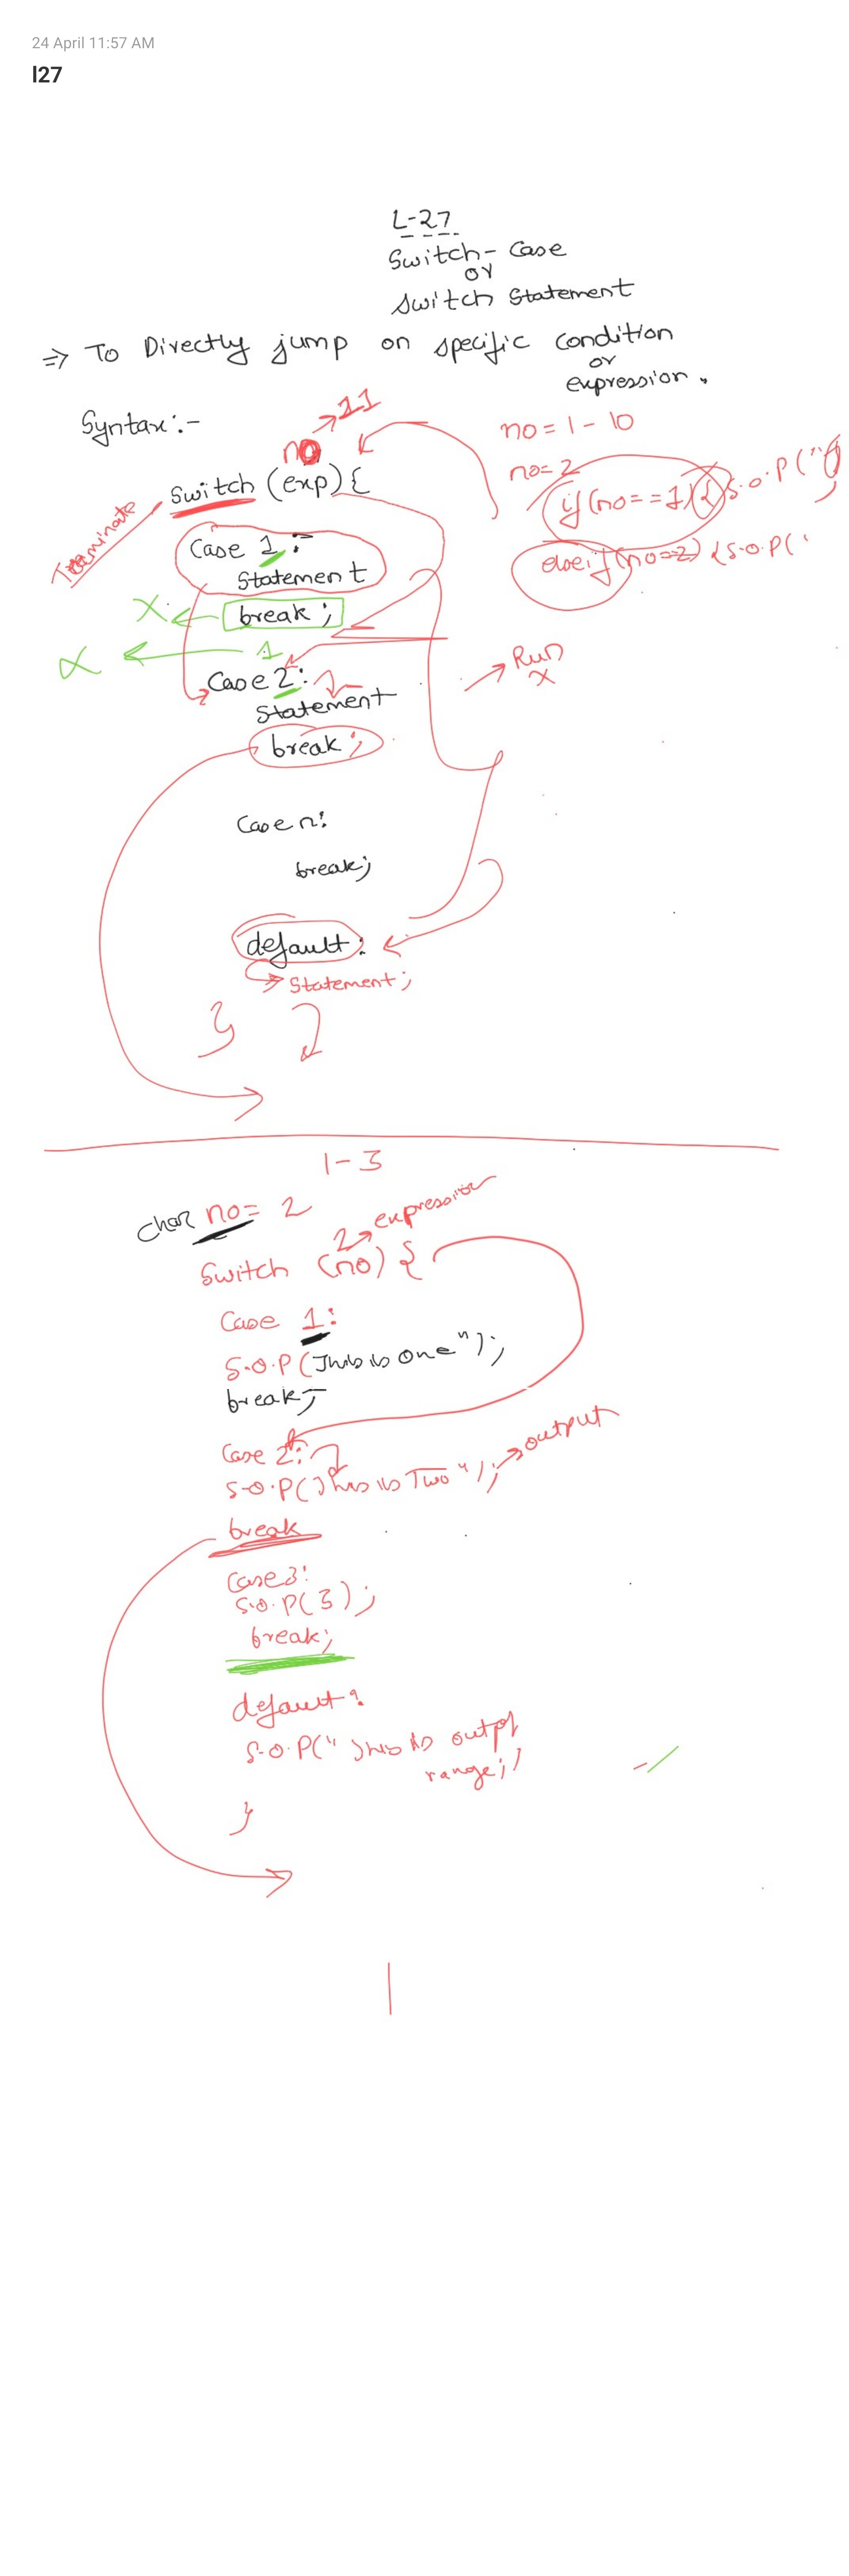 24 April 11:57 AM
l27
L-27
Switch - Case
or
Switch Statement
=> To Directly jump on specific condition
or
expression.
Syntax:-
11
no
no = 1 - 10
no = 2
Switch (exp) {
if (no == 1) { S.o.P (" ")
Terminate
Case 1 :
Statement
else if (no=2) { S.O.P ( '
X
break ;
1
Run
X
Case 2 :
Statement
break ;
Case n:
break;
default :
Statement ;
}
1 - 3
char no = 2
2 expression
Switch (no) {
Case 1 :
S.O.P (This is One " ) ;
break ;
Case 2 :
S.O.P ( This is Two " ) ; output
break
Case 3 :
S.O.P ( 3 ) ;
break ;
default :
S.O.P ( " This is
range ; )
}